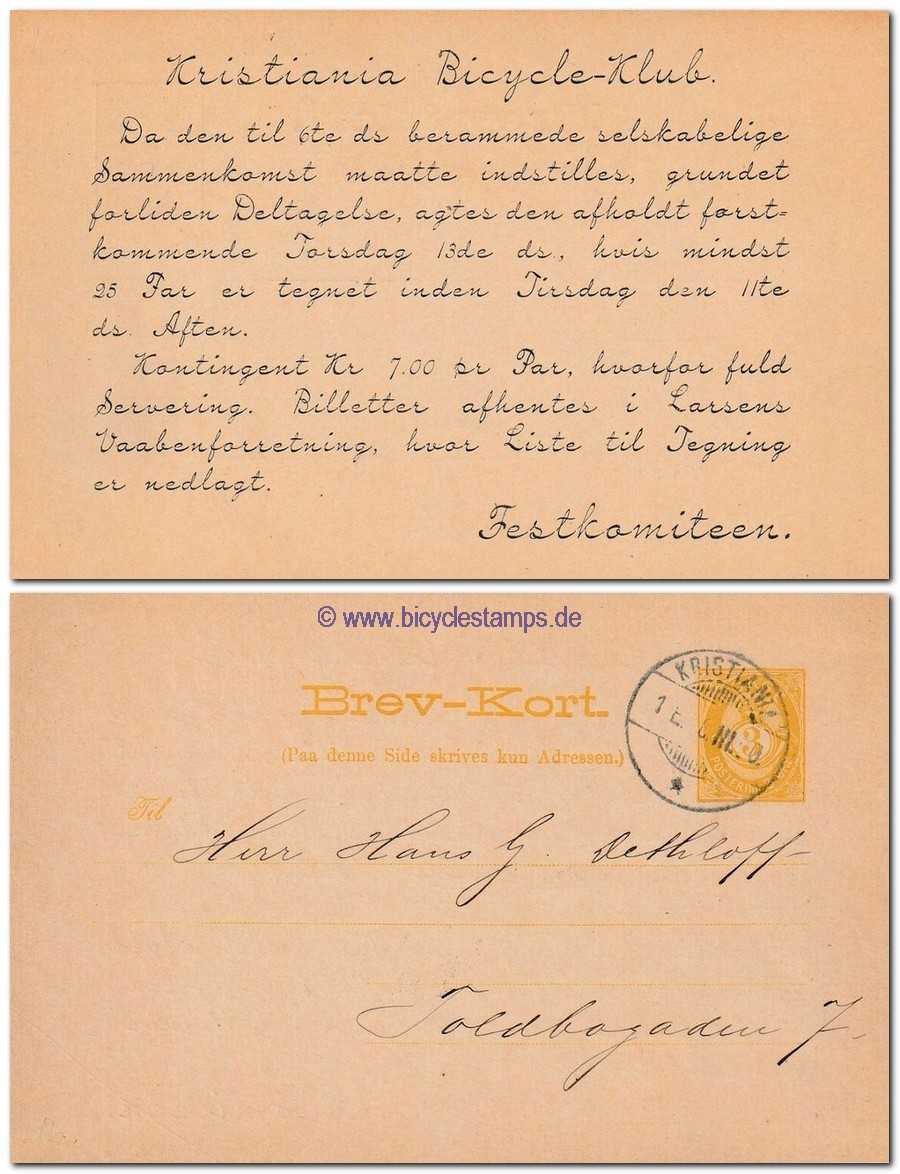 Kristiania Bicycle-Klub.
Da den til 6te ds berammede selskabelige
Sammenkomst maatte indstilles, grundet
forliden Deltagelse, agtes den afholdt først=
kommende Torsdag 13de ds., hvis mindst
25 Par er tegnet inden Tirsdag den 11te
ds. Aften.
Kontingent Kr 7.00 pr Par, hvorfor fuld
Servering. Billetter afhentes i Larsens
Vaabenforretning, hvor Liste til Tegning
er nedlagt.
Festkomiteen.
© www.bicyclestamps.de
Brev-Kort.
(Paa denne Side skrives kun Adressen.)
KRISTIANIA
III
3
Til
Herr Hans G. Dethloff
Toldbogaden 7